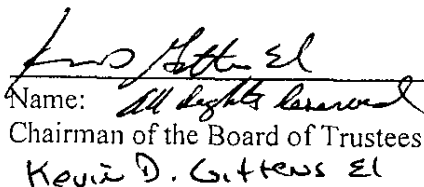 K D Gittens El
Name: All Rights Reserved
Chairman of the Board of Trustees
Kevin D. Gittens El